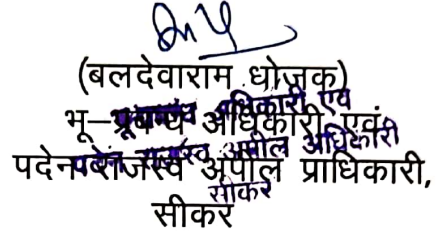 (बलदेवाराम धोजक)
भू-प्रबन्ध अधिकारी एवं
पदेन राजस्व अपील प्राधिकारी,
सीकर
अधिकारी एवं
अपील अधिकारी
सीकर